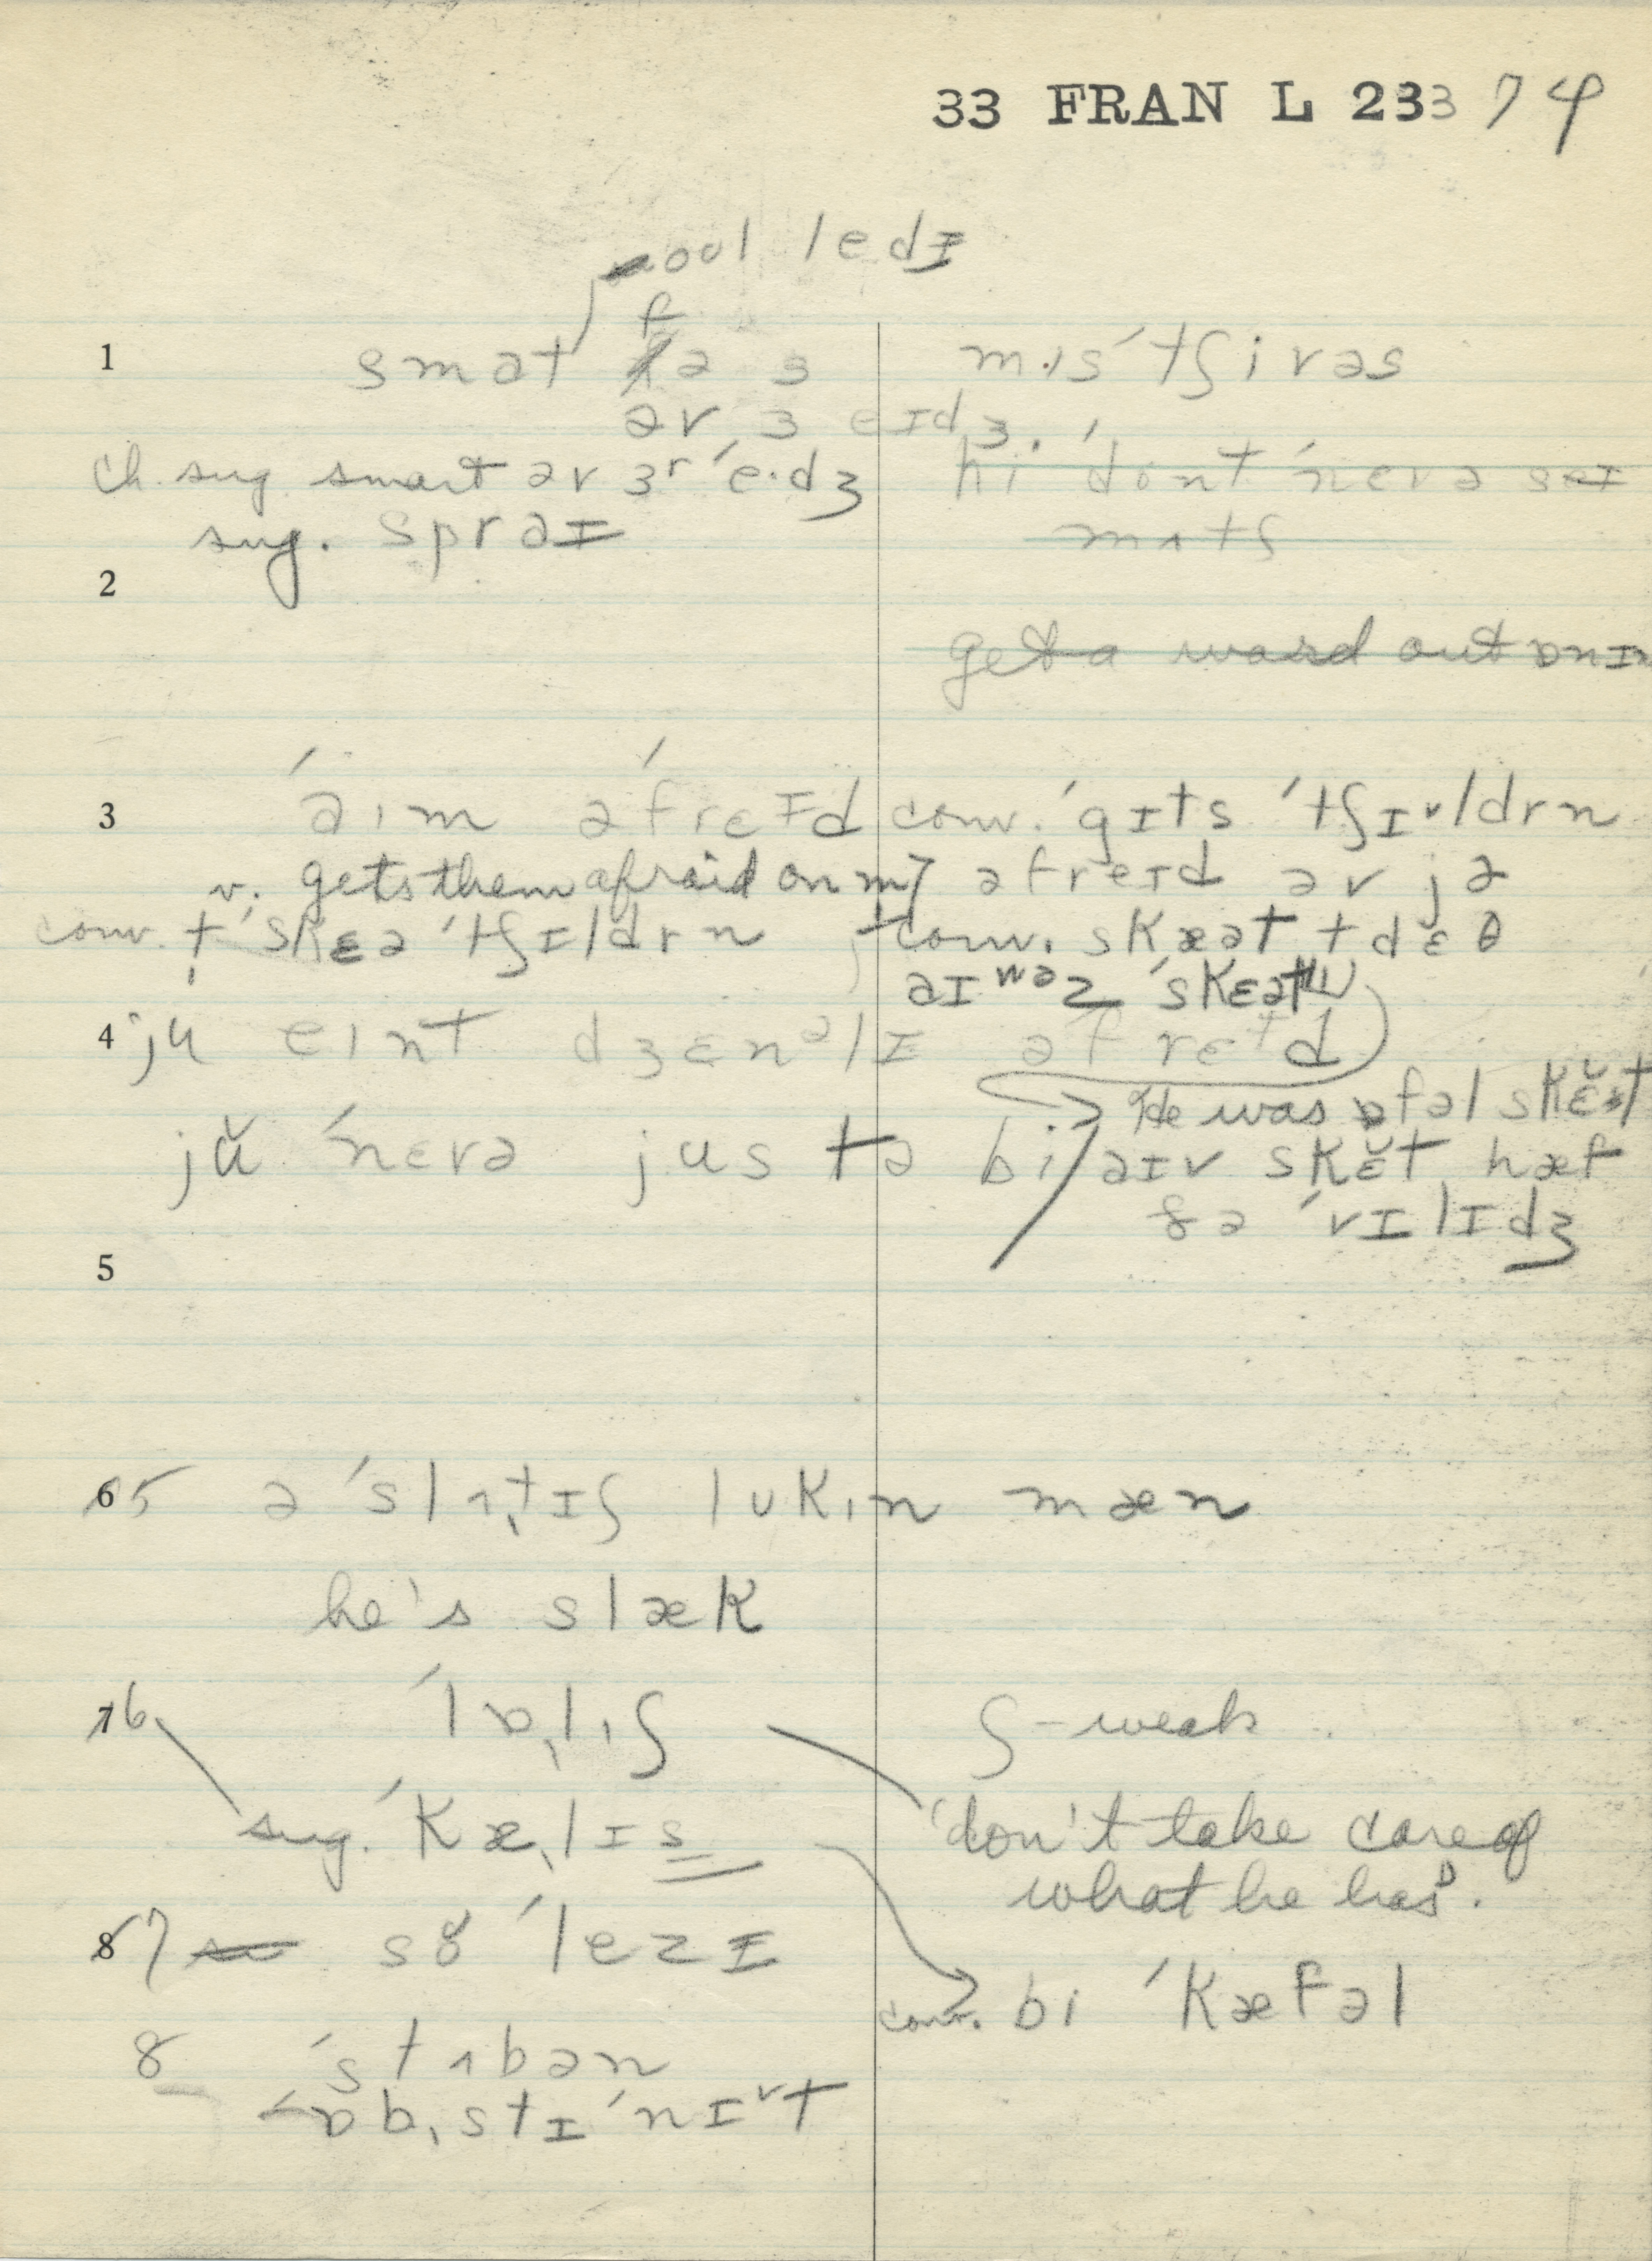 33 FRAN L 233 74
ool ledɪ
1 smat fə ɜ mɪs ˈtʃivəs
əv ɜ eɪdʒ.
ch. sug. smart əv ɜr ˈe·dʒ hi ˈdont ˈnevə seɪ
sug. sprəɪ mʌtʃ
2
get a word out ɒn ɪm
3 ˈaɪm əˈfreɪd conv. ˈgɪts ˈtʃɪldrn
v. gets them afraid on m əfreɪd əv jə
conv. t ˈskɛə ˈtʃɪldrn conv. skæət t dɛθ
aɪ wəz ˈskɛət
4 ju eɪnt dʒɛnəlɪ əfreɪd
He was ɒfəl skɛ̆ət
jŭ ˈnevə jus tə bi aɪv skɛ̆t hæf
ðə ˈvɪlɪdʒ
5
6 5 ə ˈslʌtɪʃ lʊkɪn mæn
he's slæk
7 6 ˈlɒlɪʃ ʃ - weak
sug. ˈkælɪs don't take care of
what he has.
8 7 sŏ ˈlezɪ
conv. bi ˈkæfəl
8 ˈstʌbən
ɒbstɪˈnɪt